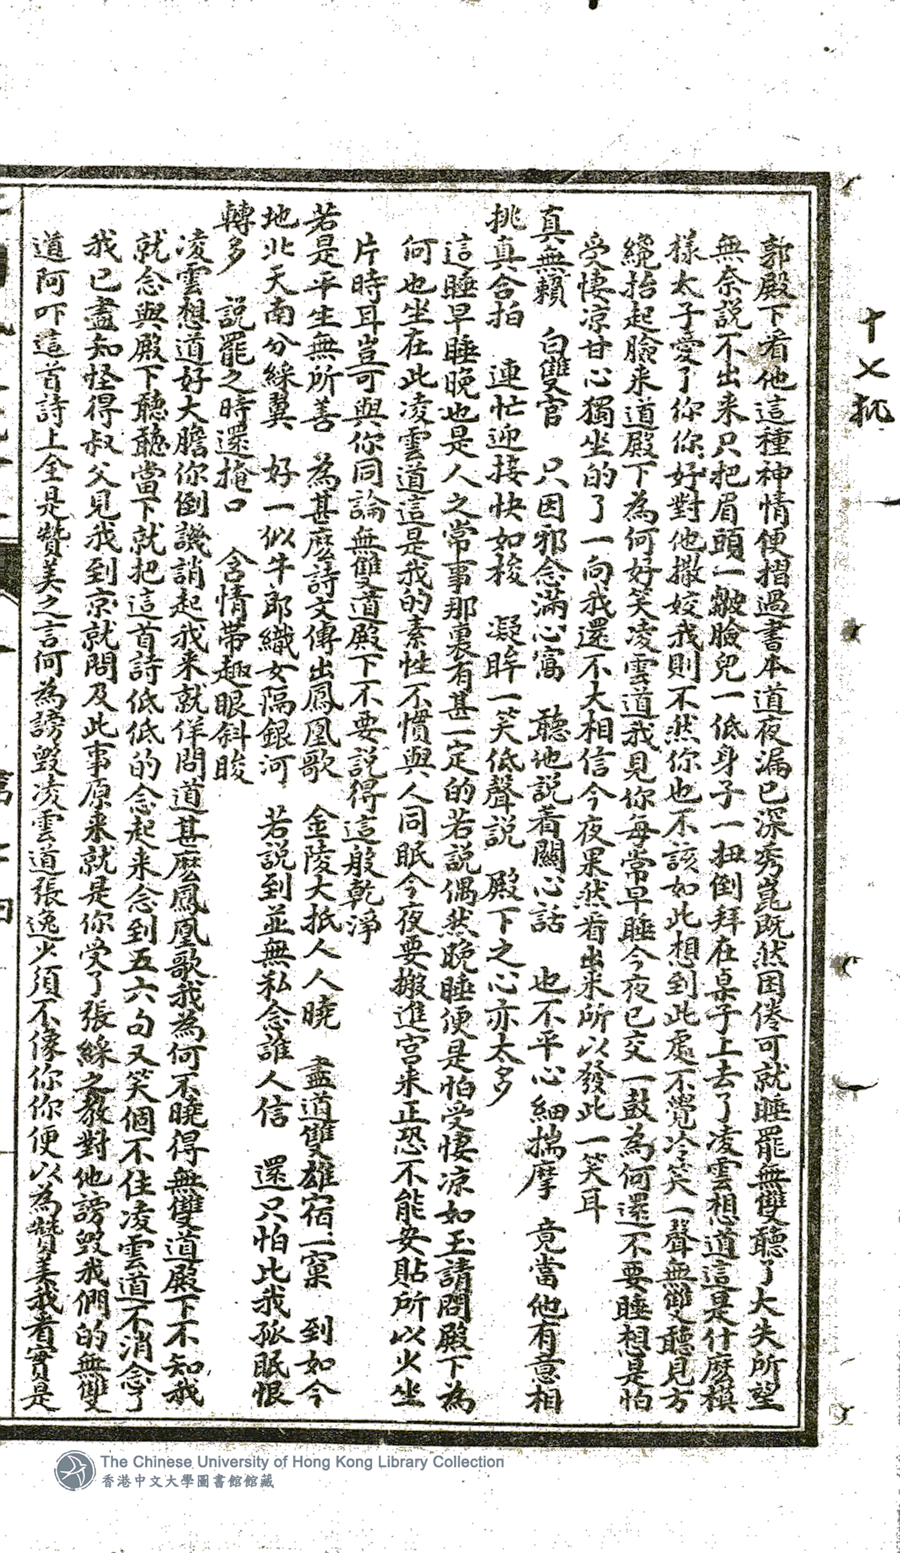 十七批
郭殿下看他這種神情便摺過書本道夜漏已深秀崑既然困倦可就睡罷無雙聽了大失所望
無奈說不出来只把眉頭一皺臉兒一低身子一扭倒拜在桌子上去了凌雲想道這是什麽模
樣太子愛了你你好對他撒姣我則不然你也不該如此想到此處不覺冷笑一聲無雙聽見方
纔抬起臉来道殿下為何好笑凌雲道我見你每常早睡今夜已交一鼓為何還不要睡想是怕
受悽凉甘心獨坐的了一向我還不大相信今夜果然看出来所以發此一笑耳
真無賴 白雙官 只因邪念滿心窩 聽他說着關心話 也不平心細揣摩 竟當他有意相
挑真合拍 連忙迎接快如梭 凝眸一笑低聲說 殿下之心亦太多
這睡早睡晚也是人之常事那裏有甚一定的若說偶然晚睡便是怕受悽凉如玉請問殿下為
何也坐在此凌雲道這是我的素性不慣與人同眠今夜要搬進宮来正恐不能安貼所以火坐
片時耳豈可與你同論無雙道殿下不要說得這般乾淨
若是平生無所善 為甚麽詩文傳出鳳凰歌 金陵大抵人人曉 盡道雙雄宿一窠 到如今
地北天南分綵翼 好一似牛郎織女隔銀河 若說到並無私念誰人信 還只怕比我孤眠恨
轉多 說罷之時還掩口 含情帶趣眼斜睃
凌雲想道好大膽你倒譏誚起我来就佯問道甚麽鳳凰歌我為何不曉得無雙道殿下不知我
就念與殿下聽聽當下就把這首詩低低的念起来念到五六句又笑個不住凌雲道不消念了
我已盡知怪得叔父見我到京就問及此事原来就是你受了張綵之教對他謗毀我們的無雙
道阿吓這首詩上全是贊美之言何為謗毀凌雲道張逸少須不像你你便以為贊美我看實是
The Chinese University of Hong Kong Library Collection
香港中文大學圖書館館藏